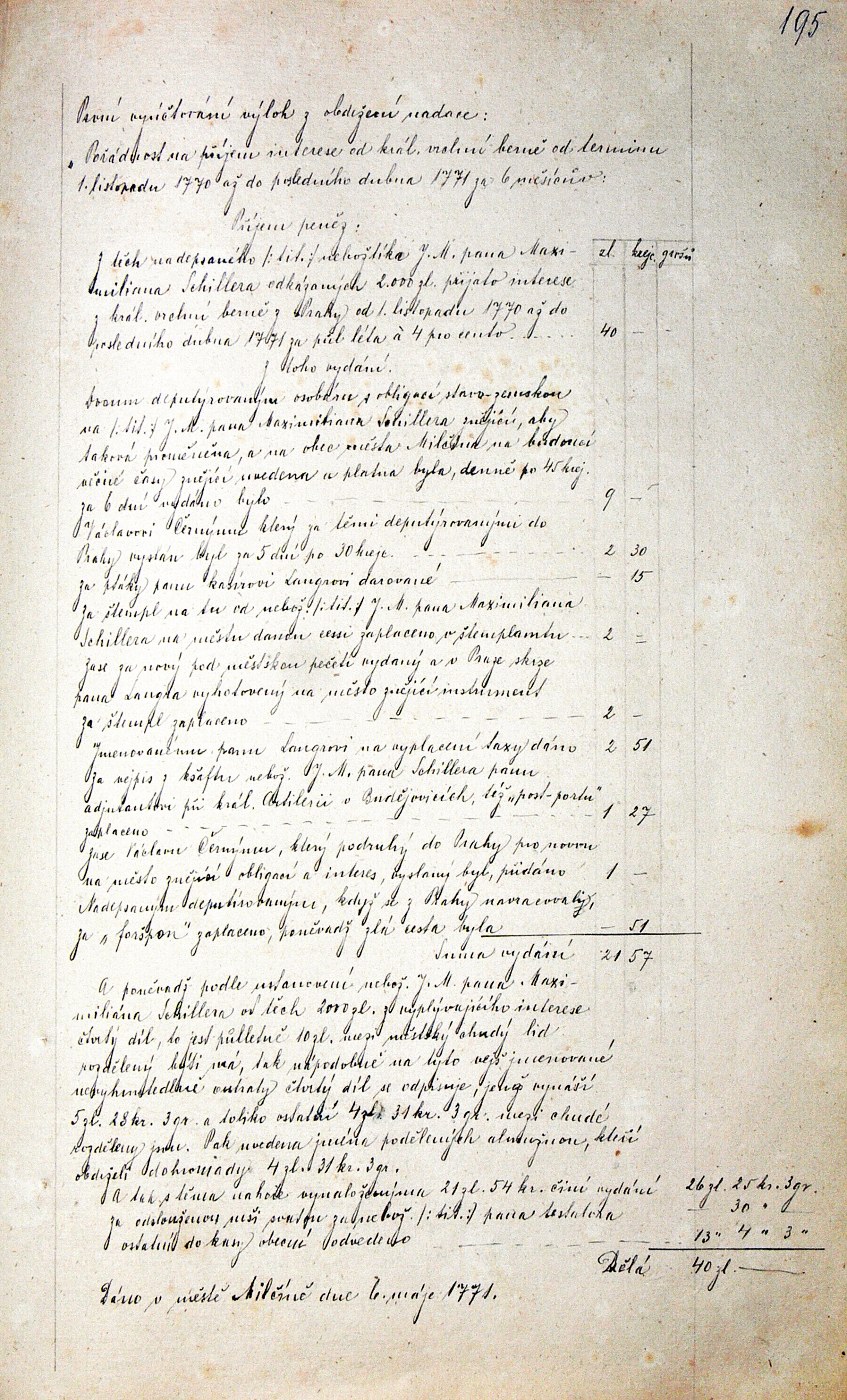 195
První vyúčtování výloh z obdržení nadace:
„Pořádnost na příjem interese od král. vrchní berně od terminu
1. listopadu 1770 až do posledního dubna 1771 za 6 měsícův:
Příjem peněz:
zl. krejc. grošů
Z těch nadepsaného /:tit.:/ neboštíka J. M. pana Maxi-
miliana Schillera odkázaných 2.000 zl. přijato interese
z král. vrchní berně z Prahy od 1. listopadu 1770 až do
posledního dubna 1771 za půl léta à 4 pro cento . . . . 40 — —
Z toho vydání.
Dvoum deputýrovaným osobám s obligací stavo-zemskou
na /:tit.:/ J. M. pana Maximiliana Schillera znějící, aby
taková proměněna, a na obec města Milčína na budoucí
věčné časy znějící uvedena a platna byla, denně po 45 krej.
za 6 dní vydáno bylo — — — 9 —
Václavovi Černýmu který za těmi deputýrovanými do
Prahy vyslán byl za 5 dní po 30 krejc. — — — 2 30
za ptáky panu kasírovi Langrovi darované — — — 15
Za štempl na tu od nebož. /:tit.:/ J. M. pana Maximiliana
Schillera na městu danou cessi zaplaceno v štemplamtu — 2 =
Zase za nový pod městskou pečetí vydaný a v Praze skrze
pana Langra vyhotovený na město znějící instrument
za štempl zaplaceno — — — 2 —
Jmenovanému panu Langrovi na vyplacení taxy dáno 2 51
Za vejpis z kšaftu nebož. J. M. pana Schillera panu
adjutantovi při král. Artilerii v Budějovicích, též „post-porto"
zaplaceno — — — 1 27
Zase Václavu Černýmu, který podruhý do Prahy pro novou
na město znějící obligací a interes, vyslaný byl, přidáno 1 —
Nadepsaným deputírovaným, když se z Prahy navracovaly,
za „foršpon" zaplaceno, poněvadž zlá cesta byla — 51
Suma vydání 21 57
A poněvadž podle ustanovení nebož. J. M. pana Maxi-
miliána Schillera od těch 2000 zl. z vyplývajícího interese
čtvrtý díl, to jest půlletně 10 zl. mezi městský chudý lid
rozdělený býti má, tak nápodobně na tyto vejš jmenované
nevyhnutedlné outraty čtvrtý díl se odpisuje, jenž vynáší
5 zl. 28 kr. 3 gr. a toliko ostatní 4 zl. 31 kr. 3 gr. mezi chudé
rozděleny jsou. Pak uvedena jména podělených almužnou, kteří
obdrželi dohromady 4 zl. 31 kr. 3 gr.
A tak s těma nahoře vynaloženýma 21 zl. 54 kr. činí vydání 26 zl. 25 kr. 3 gr.
za odslouženou mši svatou za nebož. /:tit.:/ pana testatora — 30 „ —
ostatní do kasy obecní odvedeno — — — 13 „ 4 „ 3 „
Dělá 40 zl. —
Dáno v městě Milčíně dne 6. máje 1771.